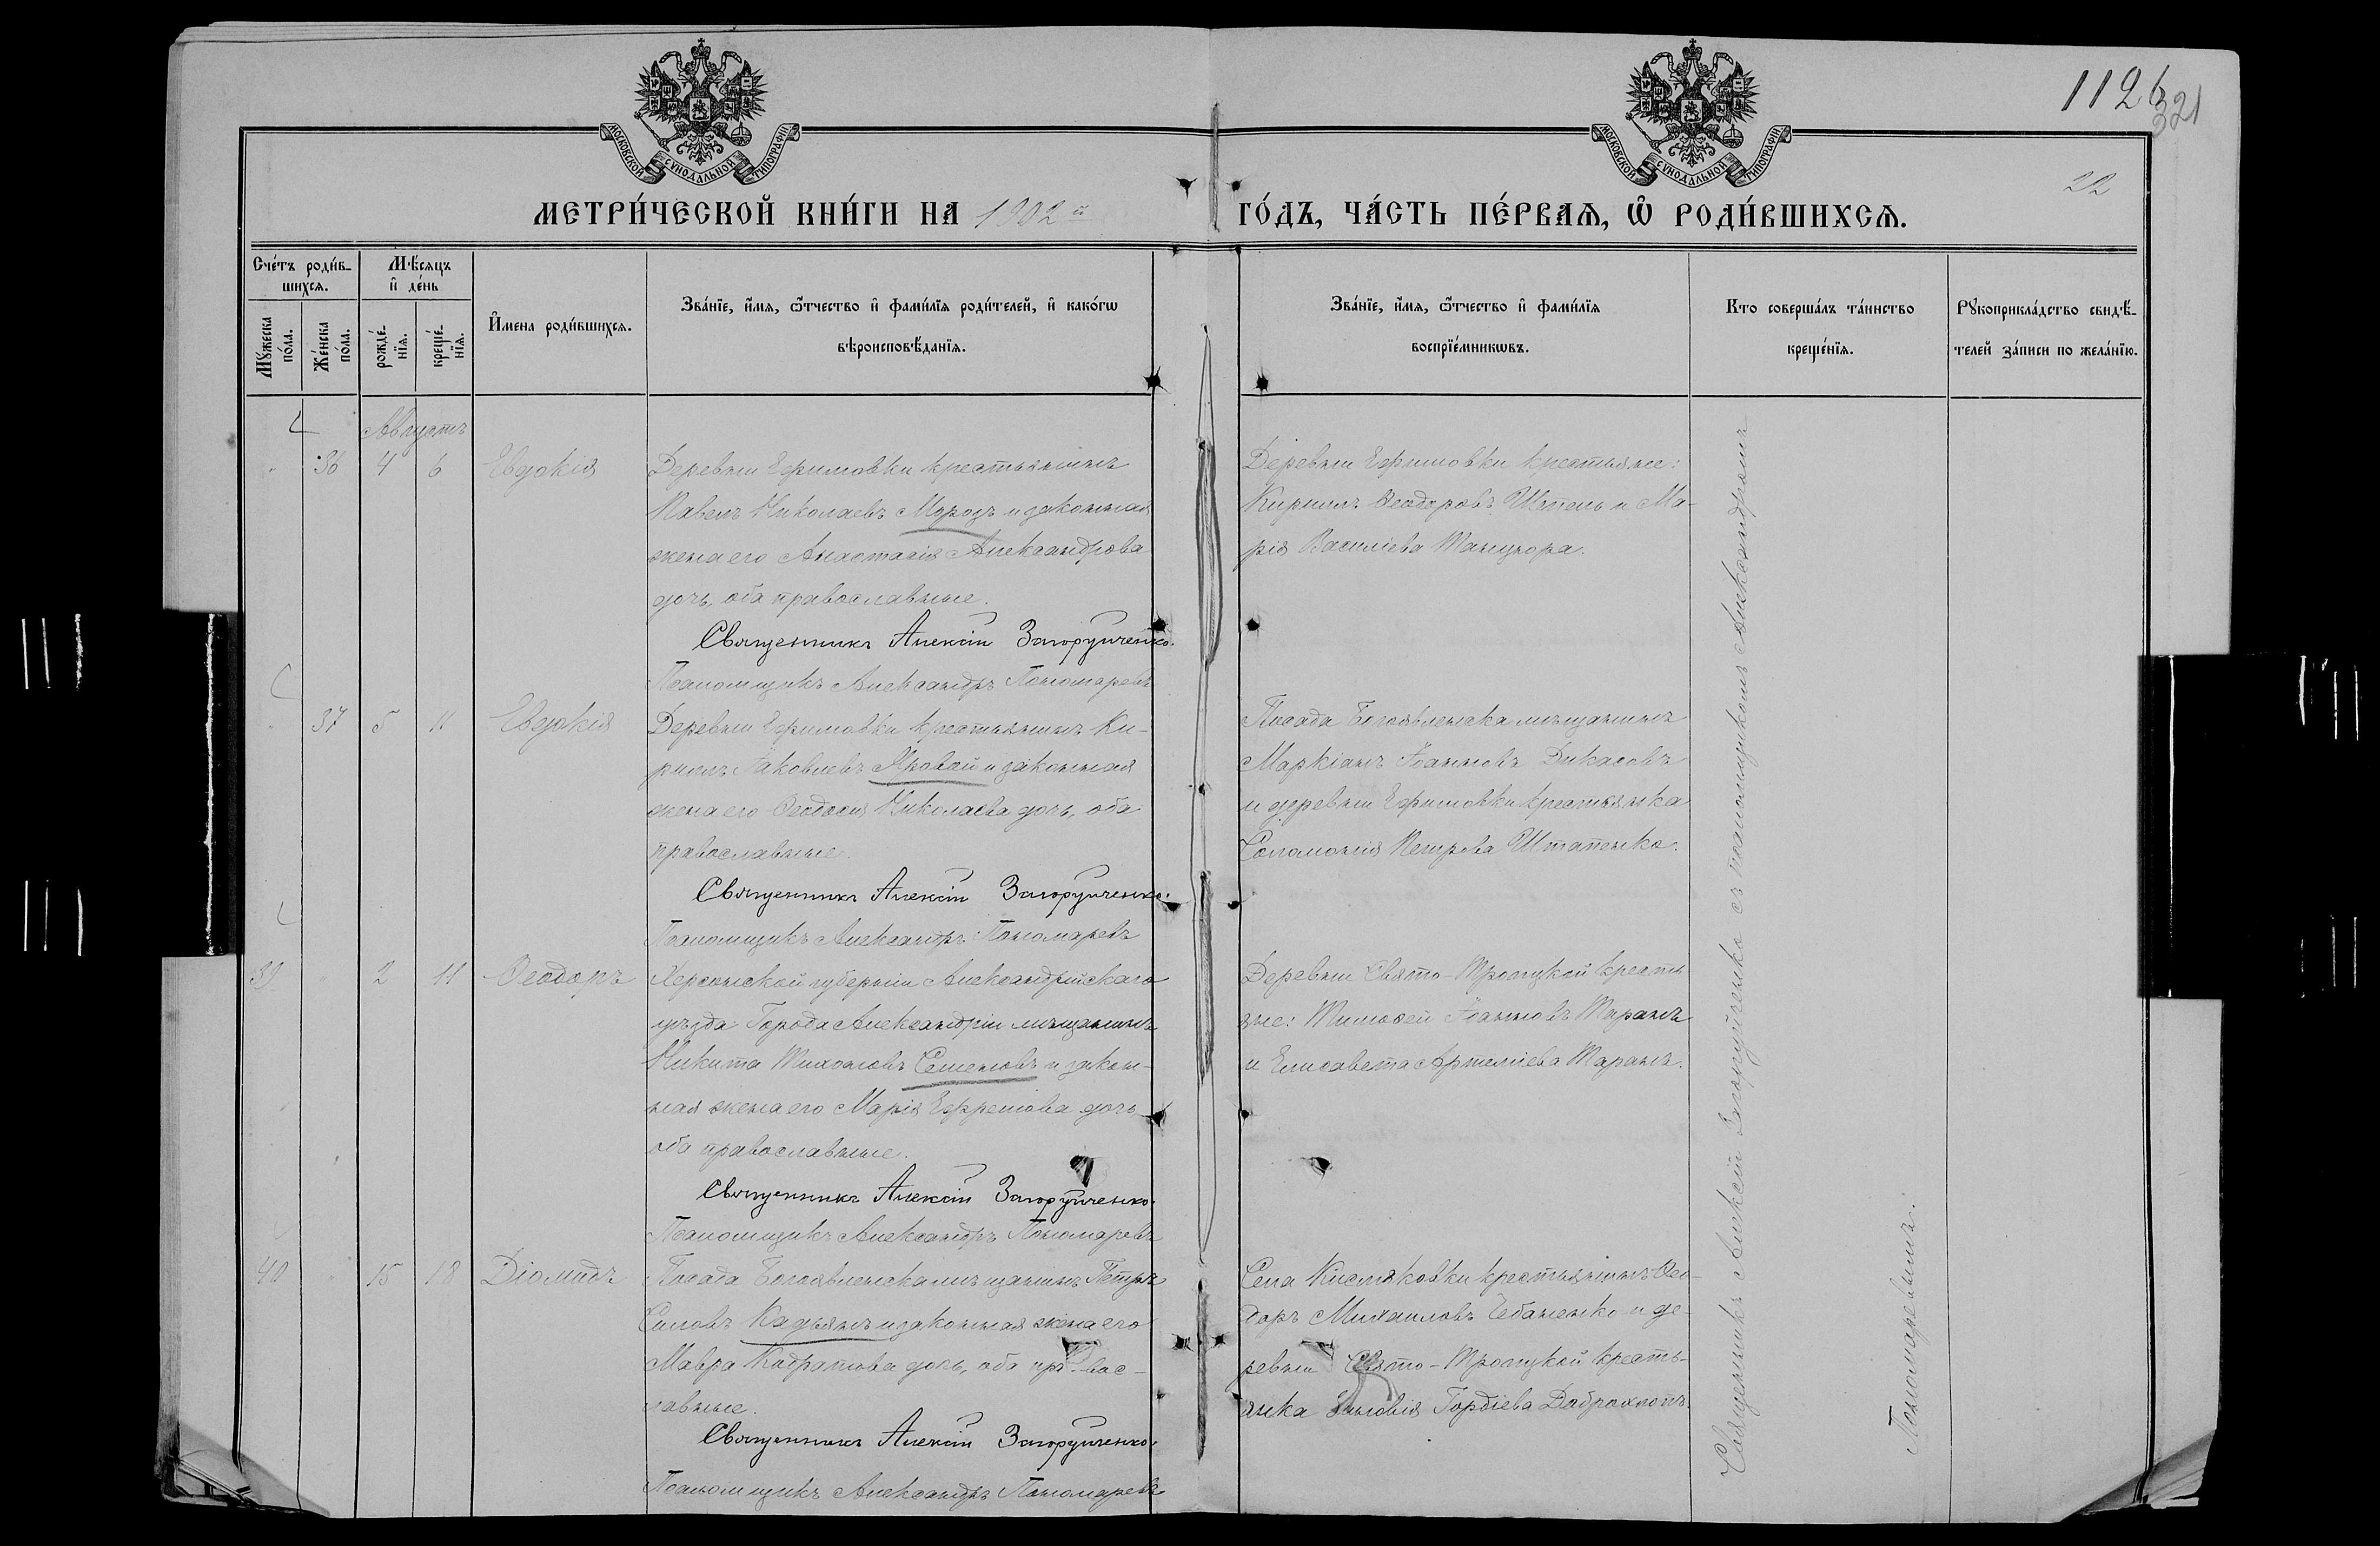 1126
321
22
МОСКОВСКОЙ СѴНОДАЛЬНОЙ ТИПОГРАФІИ
МОСКОВСКОЙ СѴНОДАЛЬНОЙ ТИПОГРАФІИ
МЕТРИ́ЧЕСКОЙ КНИ́ГИ НА 1902й ГО́ДЪ, ЧА́СТЬ ПЕ́РВАѦ, Ѡ҆ РОДИ́ВШИХСѦ.
Сче́тъ роди́в-
шихсѧ.
Мꙋжеска по́ла.
Же́нска по́ла.
Мѣ́сѧцъ и҆ де́нь
рожде́-
нїѧ.
креще́-
нїѧ.
И҆мена роди́вшихсѧ.
Зва́нїе, и҆́мѧ, ѻ҆́тчество и҆ фами́лїѧ роди́телей, и҆ како́гѡ
вѣроисповѣ́данїѧ.
Зва́нїе, и҆́мѧ, ѻ҆́тчество и҆ фами́лїѧ
воспрїе́мникѡвъ.
Кто соверша́лъ та́инство
креще́нїѧ.
Рꙋкоприкла́дство свидѣ́-
телей за́писи по жела́нїю.
Августъ
36 4 6 Евдокія
Деревни Ефимовки крестьянинъ
Павелъ Николаевъ Морозъ и законная
жена его Анастасія Александрова
дочь, оба православные.
Священникъ Алексій Загоруйченко.
Псаломщикъ Александръ Пономаревъ
Деревни Ефимовки крестьяне:
Кириллъ Ѳеодоровъ Штепь и Ма-
рія Василіева Танцюра.
37 5 11 Евдокія
Деревни Ефимовки крестьянинъ Ки-
риллъ Іаковлевъ Яковой и законная
жена его Ѳеодосія Николаева дочь, оба
православные.
Священникъ Алексій Загоруйченко.
Псаломщикъ Александръ Пономаревъ
Посада Богоявленска мѣщанинъ
Маркіанъ Іоанновъ Дикасовъ
и деревни Ефимовки крестьянка
Соломонія Петрова Штапенко.
39 2 11 Ѳеодоръ
Херсонской губерніи Александрійскаго
уѣзда Города Александріи мѣщанинъ
Никита Тихоновъ Семеновъ и закон-
ная жена его Марія Ефремова дочь
оба православные.
Священникъ Алексій Загоруйченко.
Псаломщикъ Александръ Пономаревъ
Деревни Свято-Троицкой кресть
яне: Тимоѳей Іоанновъ Таранъ
и Елисавета Артеміева Таранъ.
40 15 18 Діомидъ
Посада Богоявленска мѣщанинъ Петръ
Силовъ Кадьянъ и законная жена его
Мавра Кодратова дочь, оба правос-
лавные.
Священникъ Алексій Загоруйченко.
Псаломщикъ Александръ Пономаревъ
Села Кисляковки крестьянинъ Ѳео-
доръ Михаиловъ Чебаненко и де-
ревни Свято-Троицкой кресть-
янка Зиновія Гордіева Доброхлопъ.
Священникъ Алексій Загоруйченко съ псаломщикомъ Александромъ
Пономаревымъ.